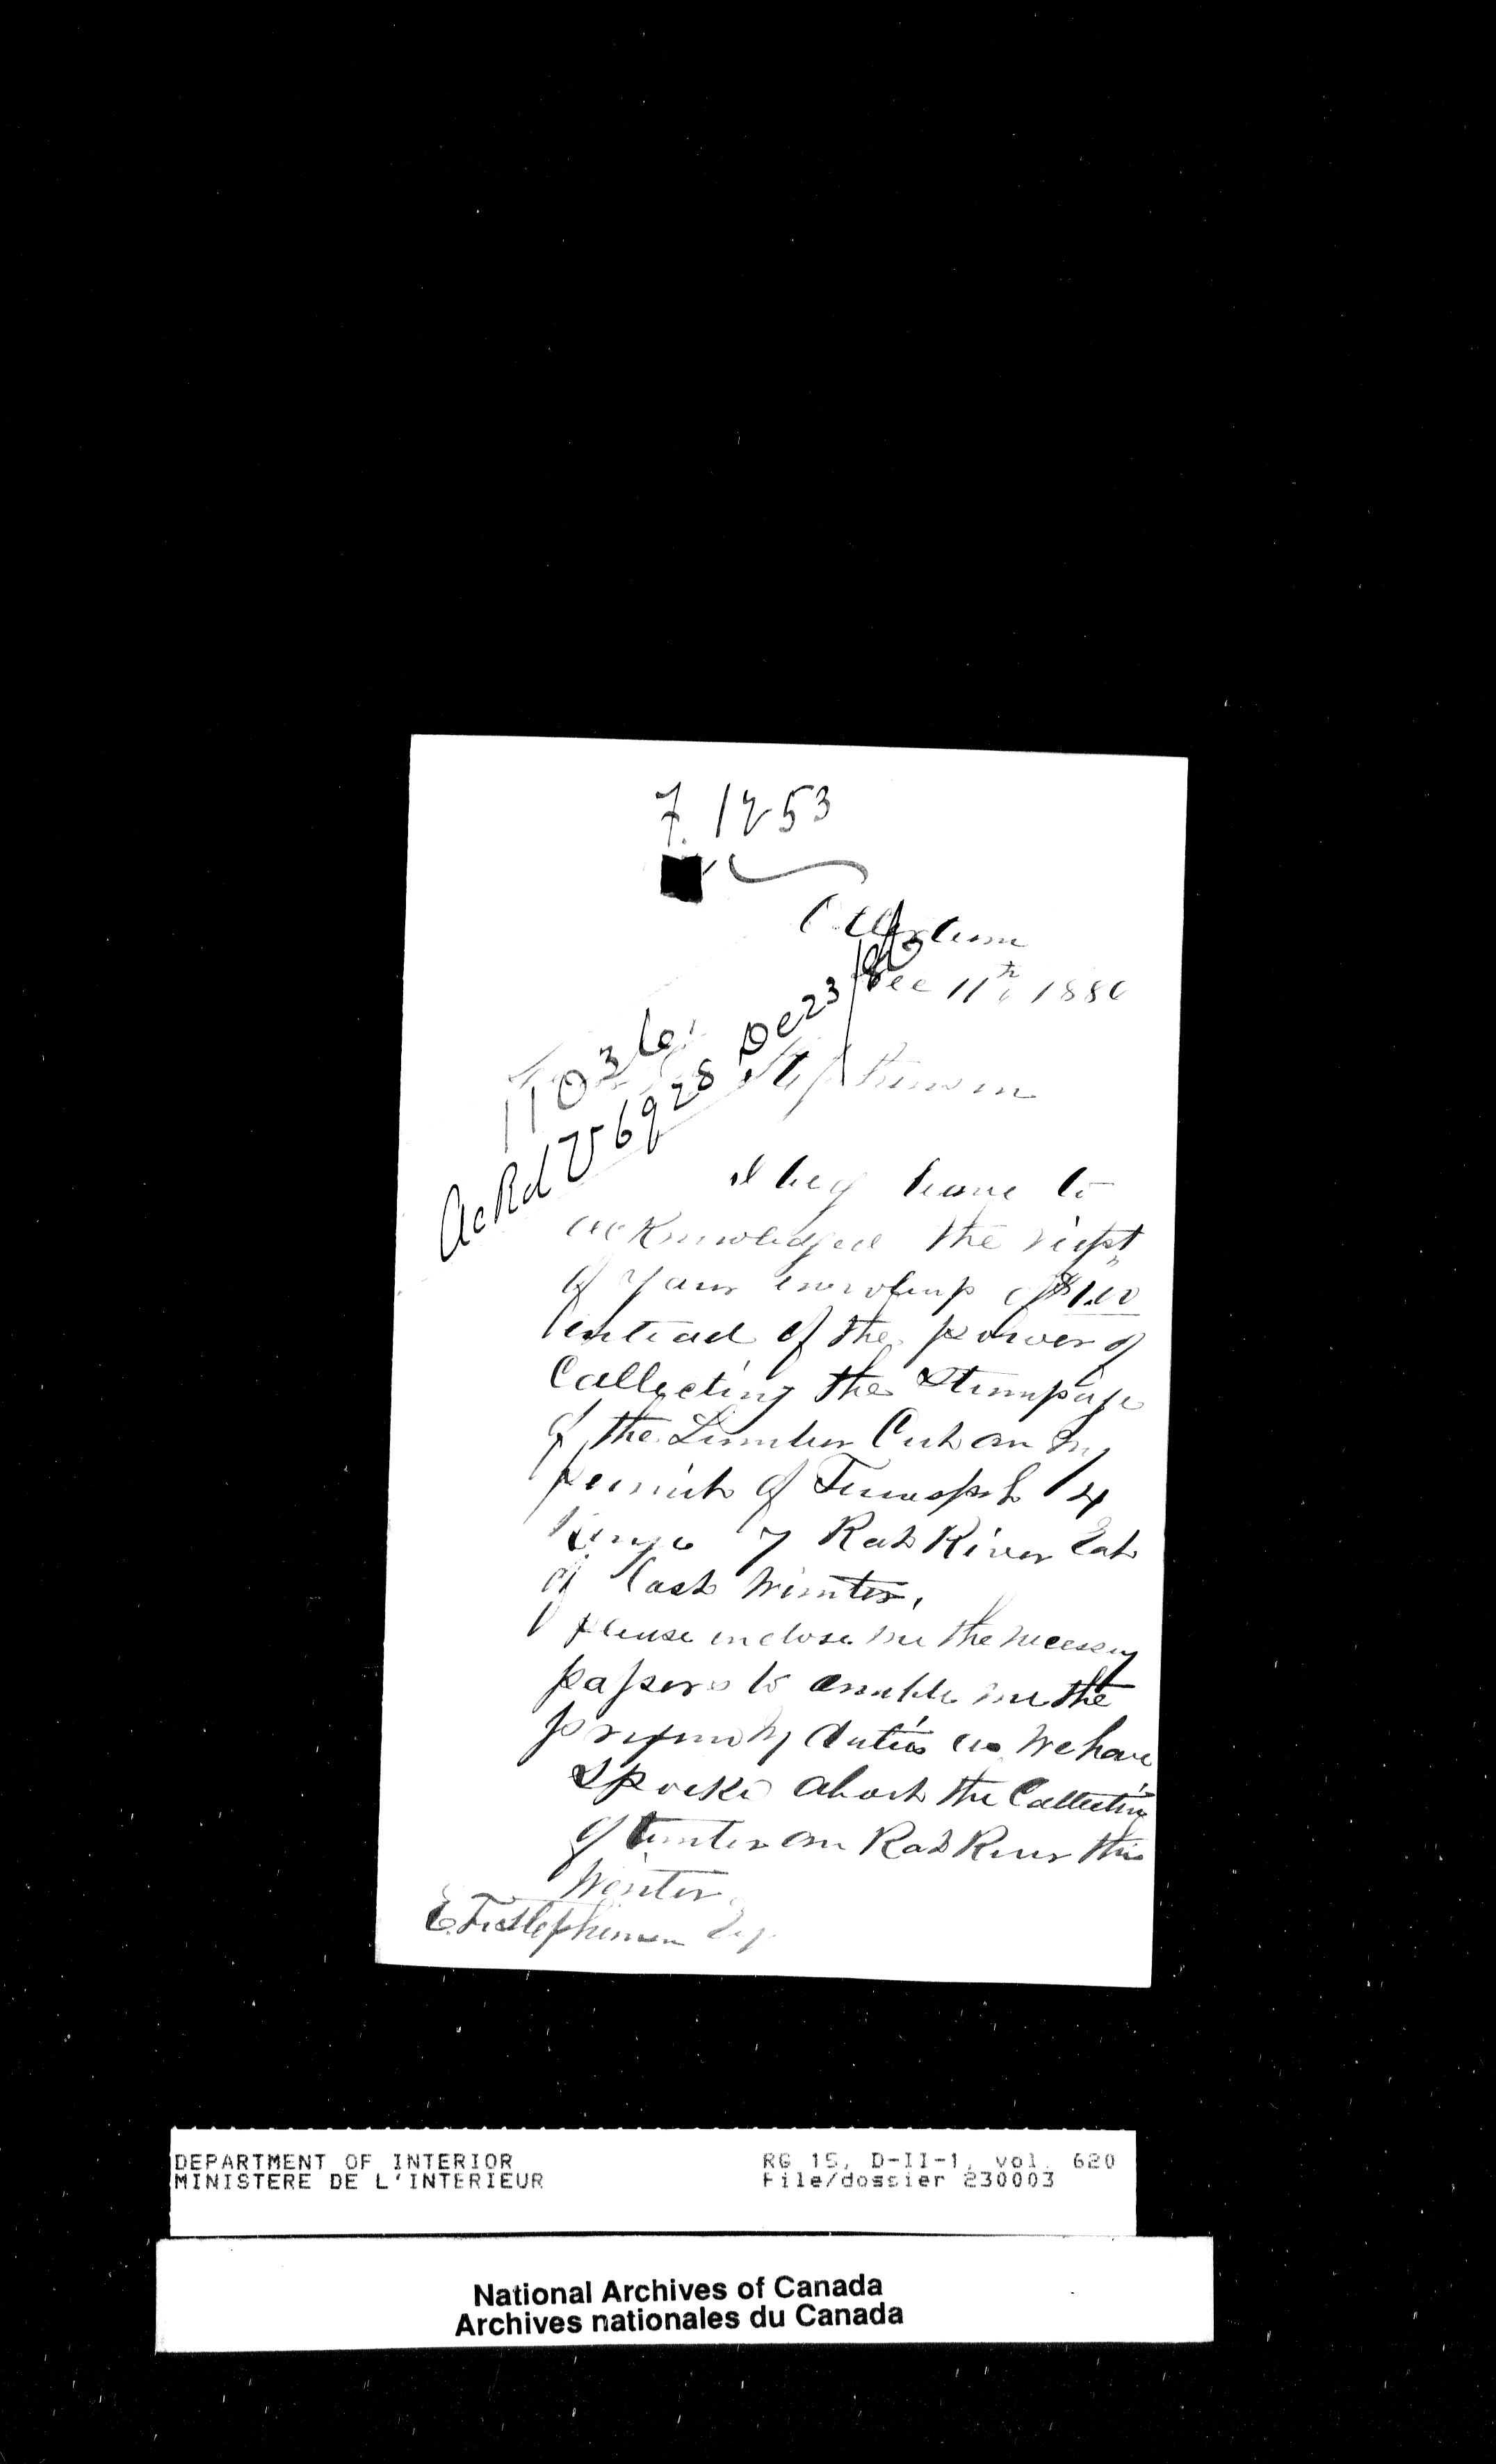 7. 1253
Otterburn
Dec 11th 1880
11036
Ackd V 6928 De 23/80
Stephenson
I beg leave to
acknowledged the
of your of $1.00
of the power of
Collecting the Stumpage
of the Lumber Cut on my
permit of Township 4
Range 7 Rat River Eat
of last winter.
please inclose me the necessary
papers to enable me the
my duties as we have
about the Collecting
of timber on Rat River this
Winter
E. F. Stephenson Esq.
DEPARTMENT OF INTERIOR
MINISTERE DE L'INTERIEUR
RG 15, D-II-1, vol. 620
File/dossier 230003
National Archives of Canada
Archives nationales du Canada